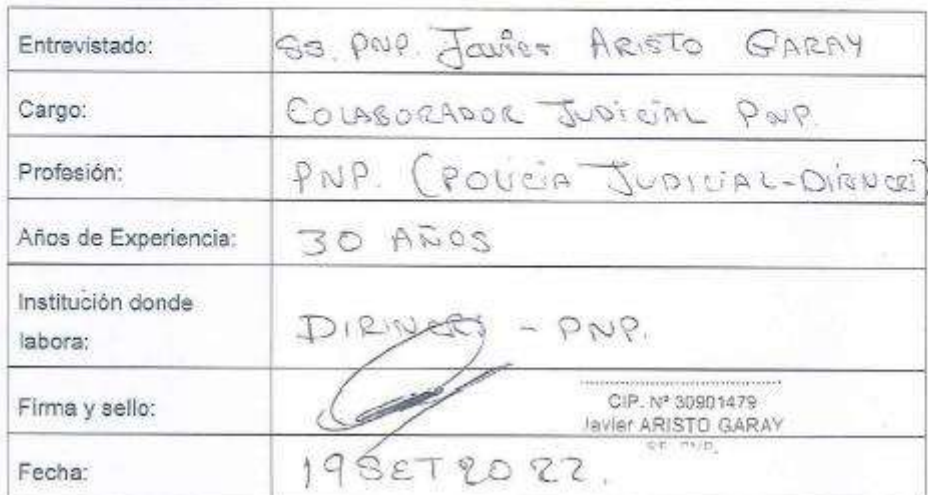 Entrevistado: SS. PNP. Javier ARISTO GARAY
Cargo: COLABORADOR JUDICIAL PNP.
Profesión: PNP. (POLICIA JUDICIAL-DIRINCRI)
Años de Experiencia: 30 AÑOS
Institución donde
labora: DIRINCRI - PNP.
Firma y sello:
CIP. Nº 30901479
Javier ARISTO GARAY
SS. PNP.
Fecha: 19 SET 2022.